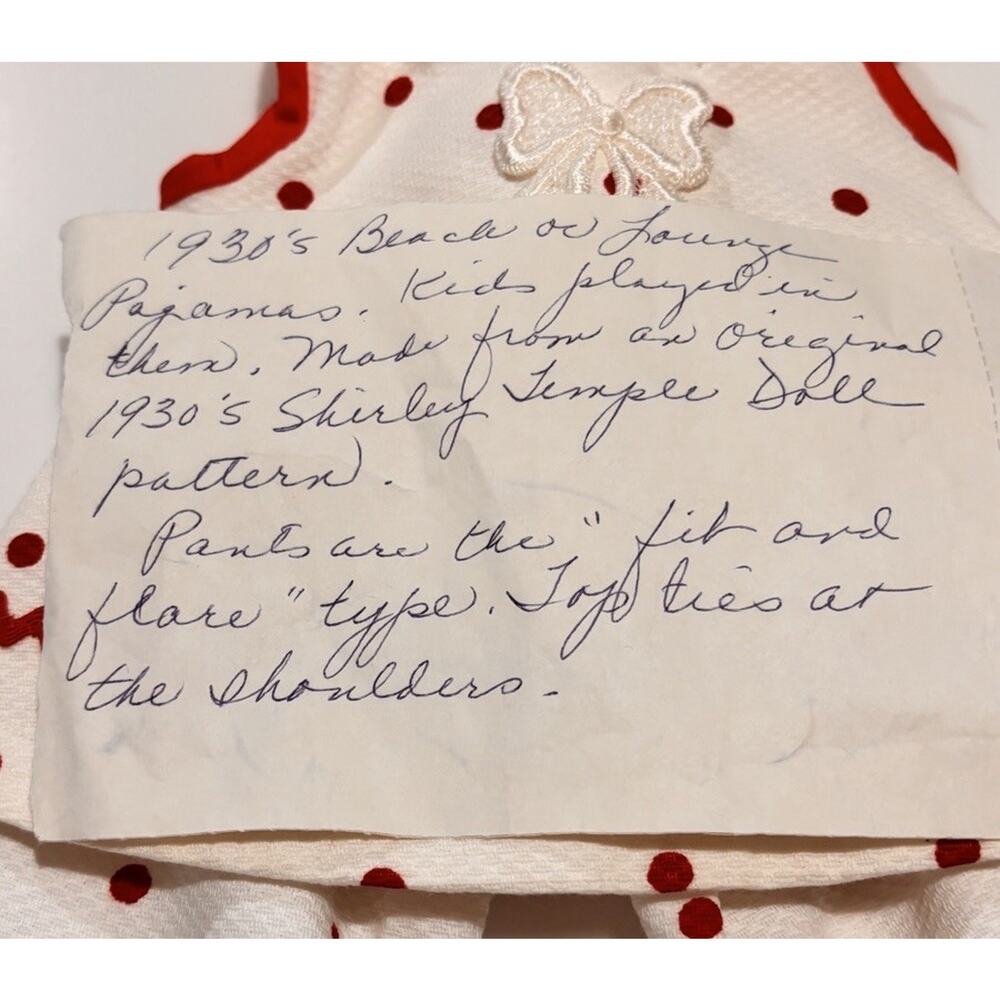 1930's Beach or Lounge
Pajamas. Kids played in
them. Made from an original
1930's Shirley Temple Doll
pattern.
Pants are the " fit and
flare " type. Top ties at
the shoulders.